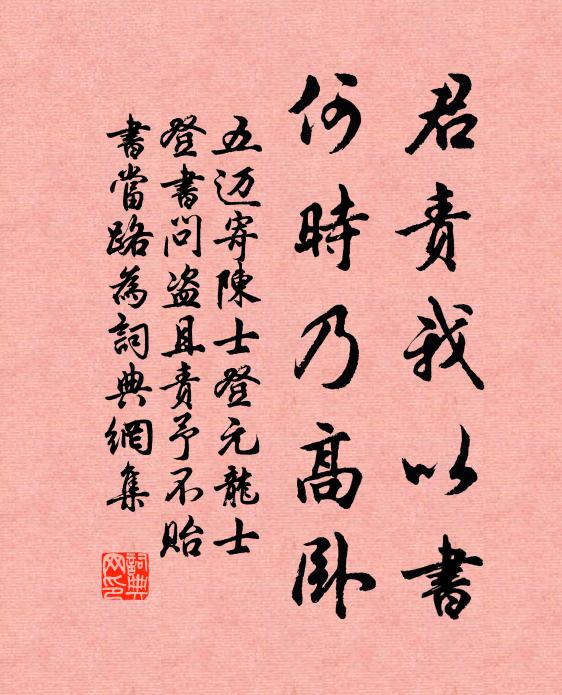 君責我以書
何時乃高臥
五迈寄陳士登元龍士
登書問盗且責予不貽
書當路為詞典網集
詞典
网印